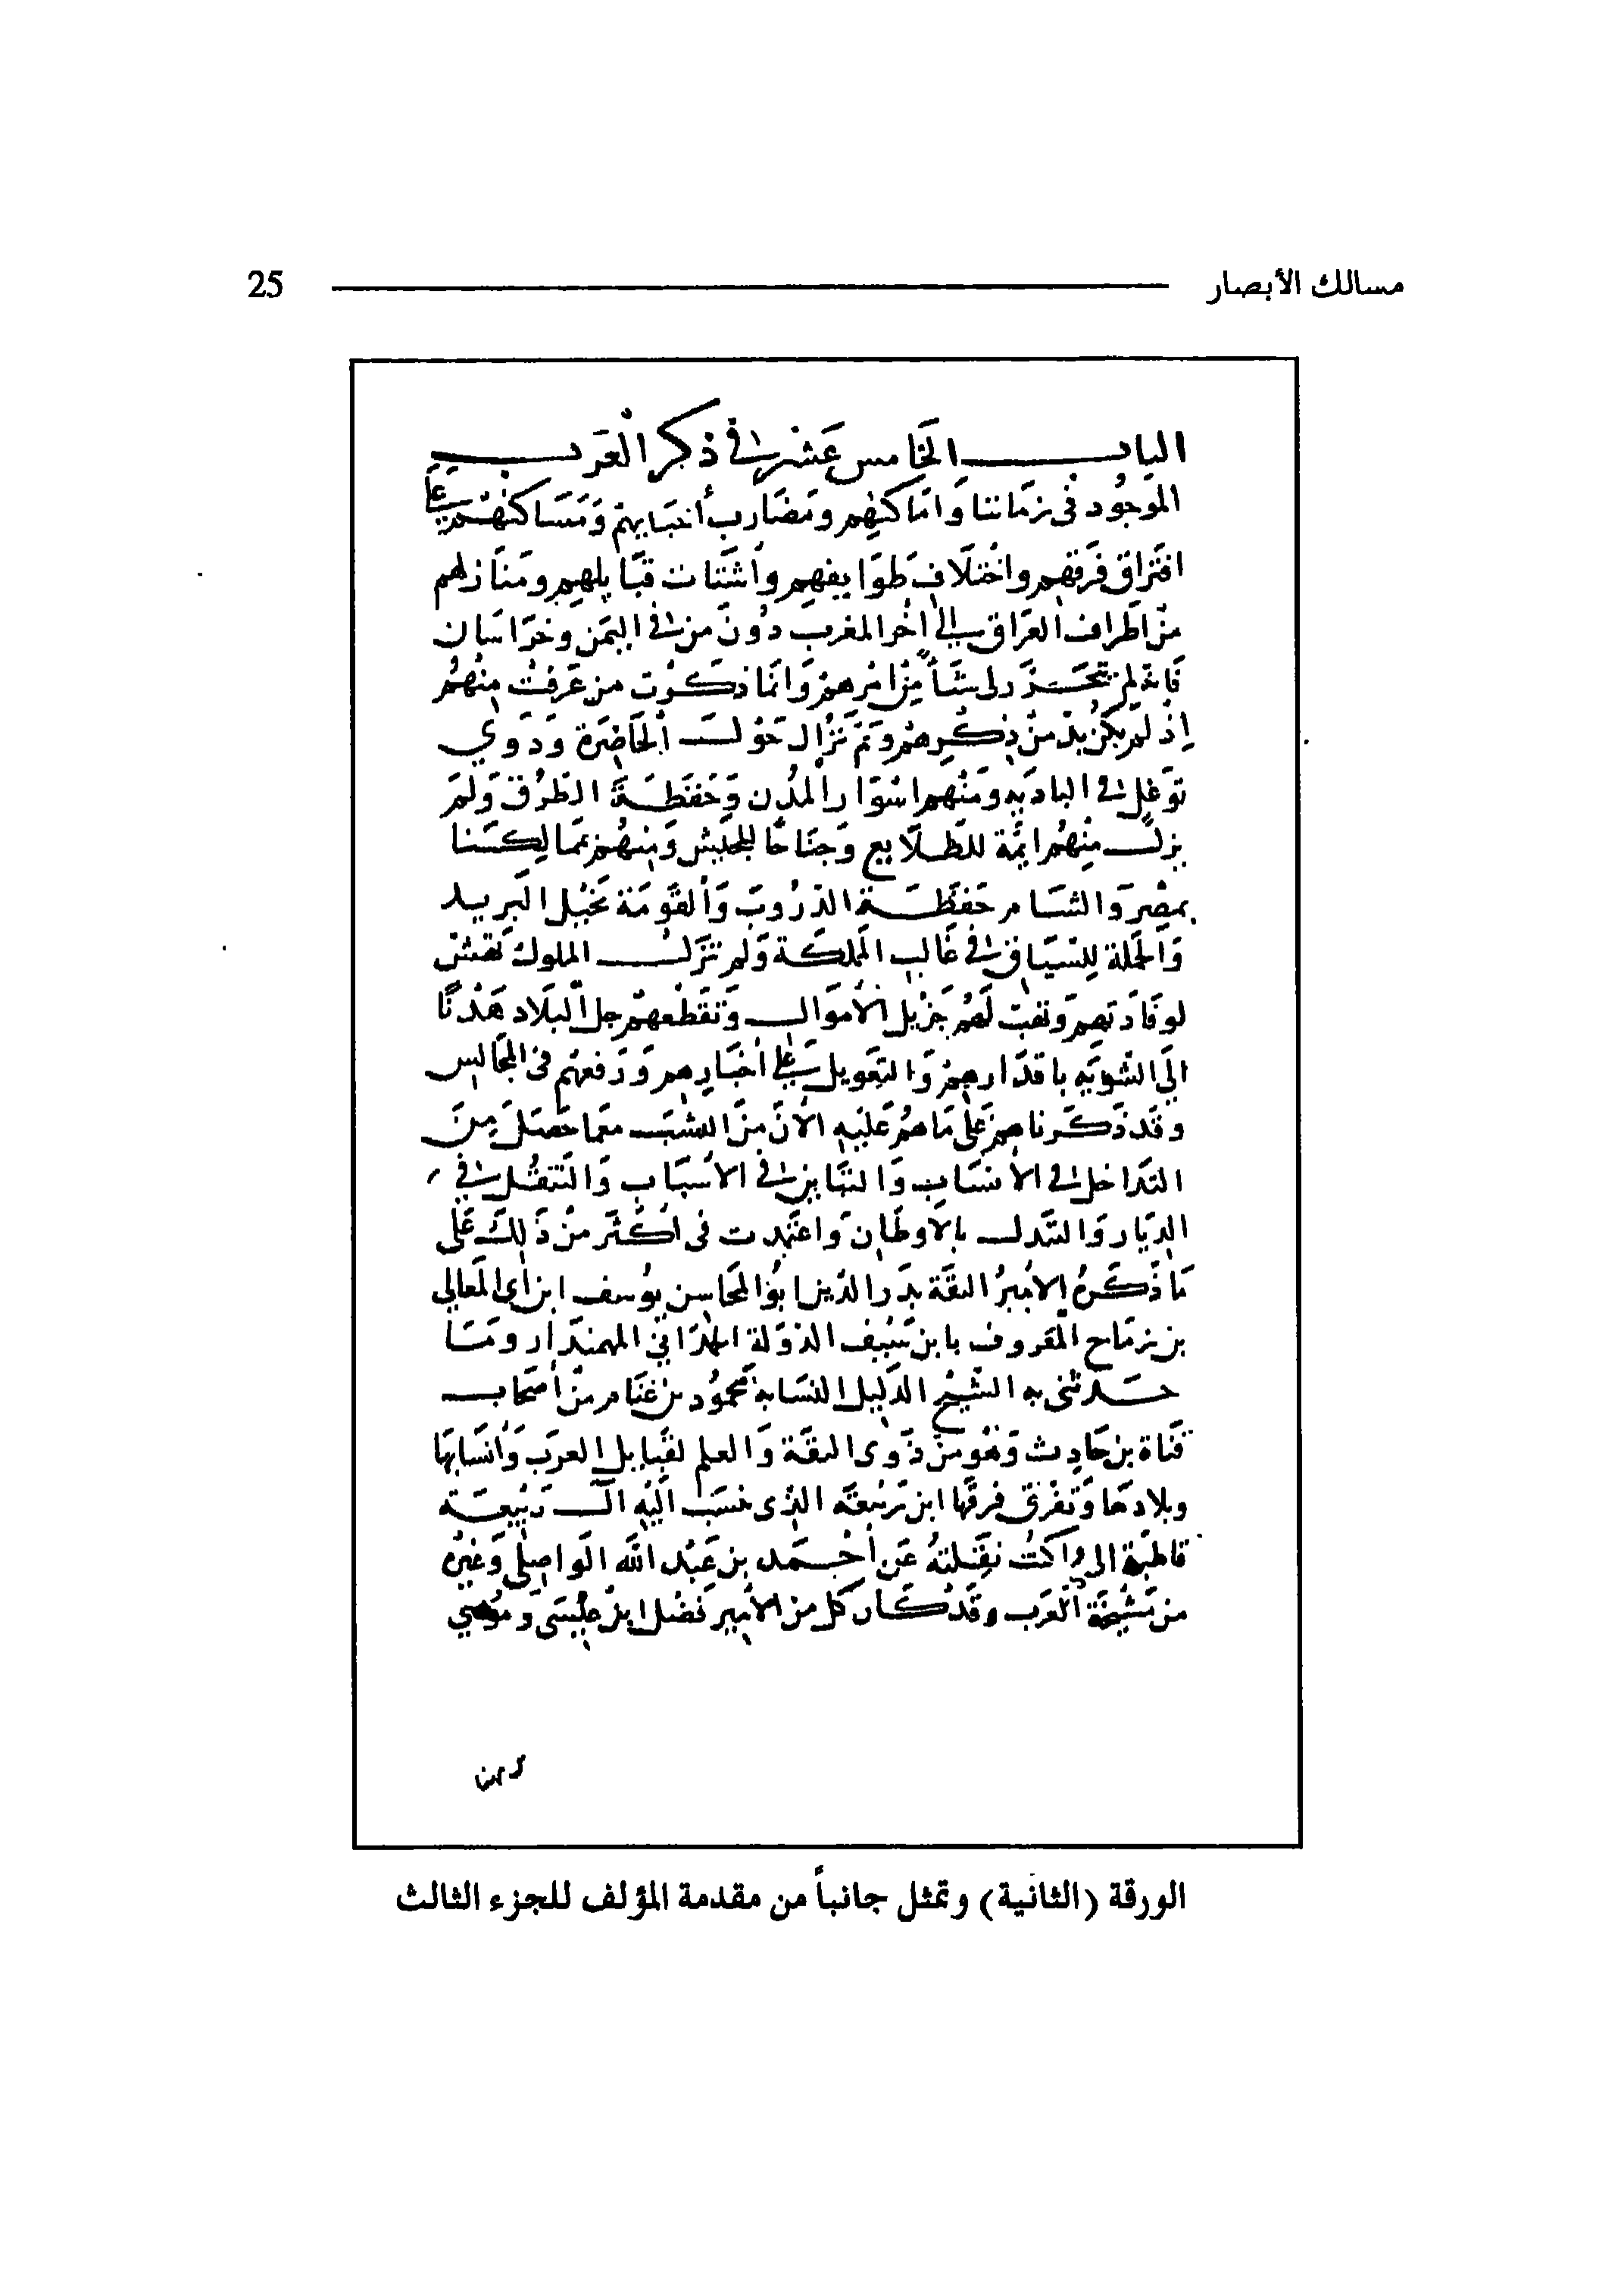 مسالك الأبصار 25
الباب الخامس عشر في ذكر العرب
الموجود في زماننا وَامَاكنهم ومضَارب أخبَايهم وَمَسَاكنهم على
افتراق فرقهم واختلاف طوَايفهم وأشتَات قبَايلهم ومنَازلهم
من اطراف العرَاق الى اخر المغرب دُونَ من في اليمَن وخرَاسَان
فانه لم يتحَــرَّر لى شأ من امرهم وَانمَا ذكرت من عرفت منهُم
إذ لم يكن بدّ من ذكرهم ولم تزال حَوْل الحَاضِرَة وَذوي
توغل في الباديه ومنهم اسْوَار المُدُن وَحَفَظَة الطرُق وَلم
يزل منهُم ايمّة للطلَايع وَجنَاحًا للجَيش وَمنهُم بممَالكنا
بمصْرَ وَالشَام حَفَظَة الدّرُوب وَالقوَمَة بخيْل البَريد
وَالحَملة للسّيَاق في غَالب المملكَة وَلم تزل الملوك
لوفادتهم وتهب لَهُم جَزيل الأموَال وَتقطعهم جل البلَاد هَذا
إلَى التنويه باقدَارهم وَالتعويل على أخبَارهم وَرفعتهم في المجَالس
وقد ذكَرناهم عَلى مَا هُم عَليْه الآن من النسَب معمَا حَصَل مِنَ
التدَاخل في الأنسَاب وَالتبَاين في الاسْبَاب وَالتنقُل في
الديَار وَالتبَدل بالأوطَان وَاعتمدت في أكثر من ذَلكَ عَلى
مَا ذكَرهُ الأميرُ الثقَة بدر الدّين ابُو المحَاسن يوُسف ابن أبى المعَالي
بن زمَاح المعروف بابن سَيْف الدَوْلة الحمْدَاني المهمندَار ومَــا
حــدثنى به الشيخ الدَليل النسَابة محمُود بن غنَام من أصحَاب
قناة بن حَارث وَهْو من ذَوى الثقَة وَالعلم لقبَايل العرَب وَأنسَابهَا
وبلادهَا وَتَفْرق فرقهَا ابن رَبيعَة الذى نسَب اليه آل ربيعَة
قاطبَة الى مَا كنت نقَلتهُ عَن أحْــمَد بن عَبْد الله الوَاصلى وَغيْره
من مَشْيخَة العَرَب وقد كَان كل من الأمير فضل ابن عيسَى وَمُوسي
الورقة (الثانية) وتمثل جانباً من مقدمة المؤلف للجزء الثالث